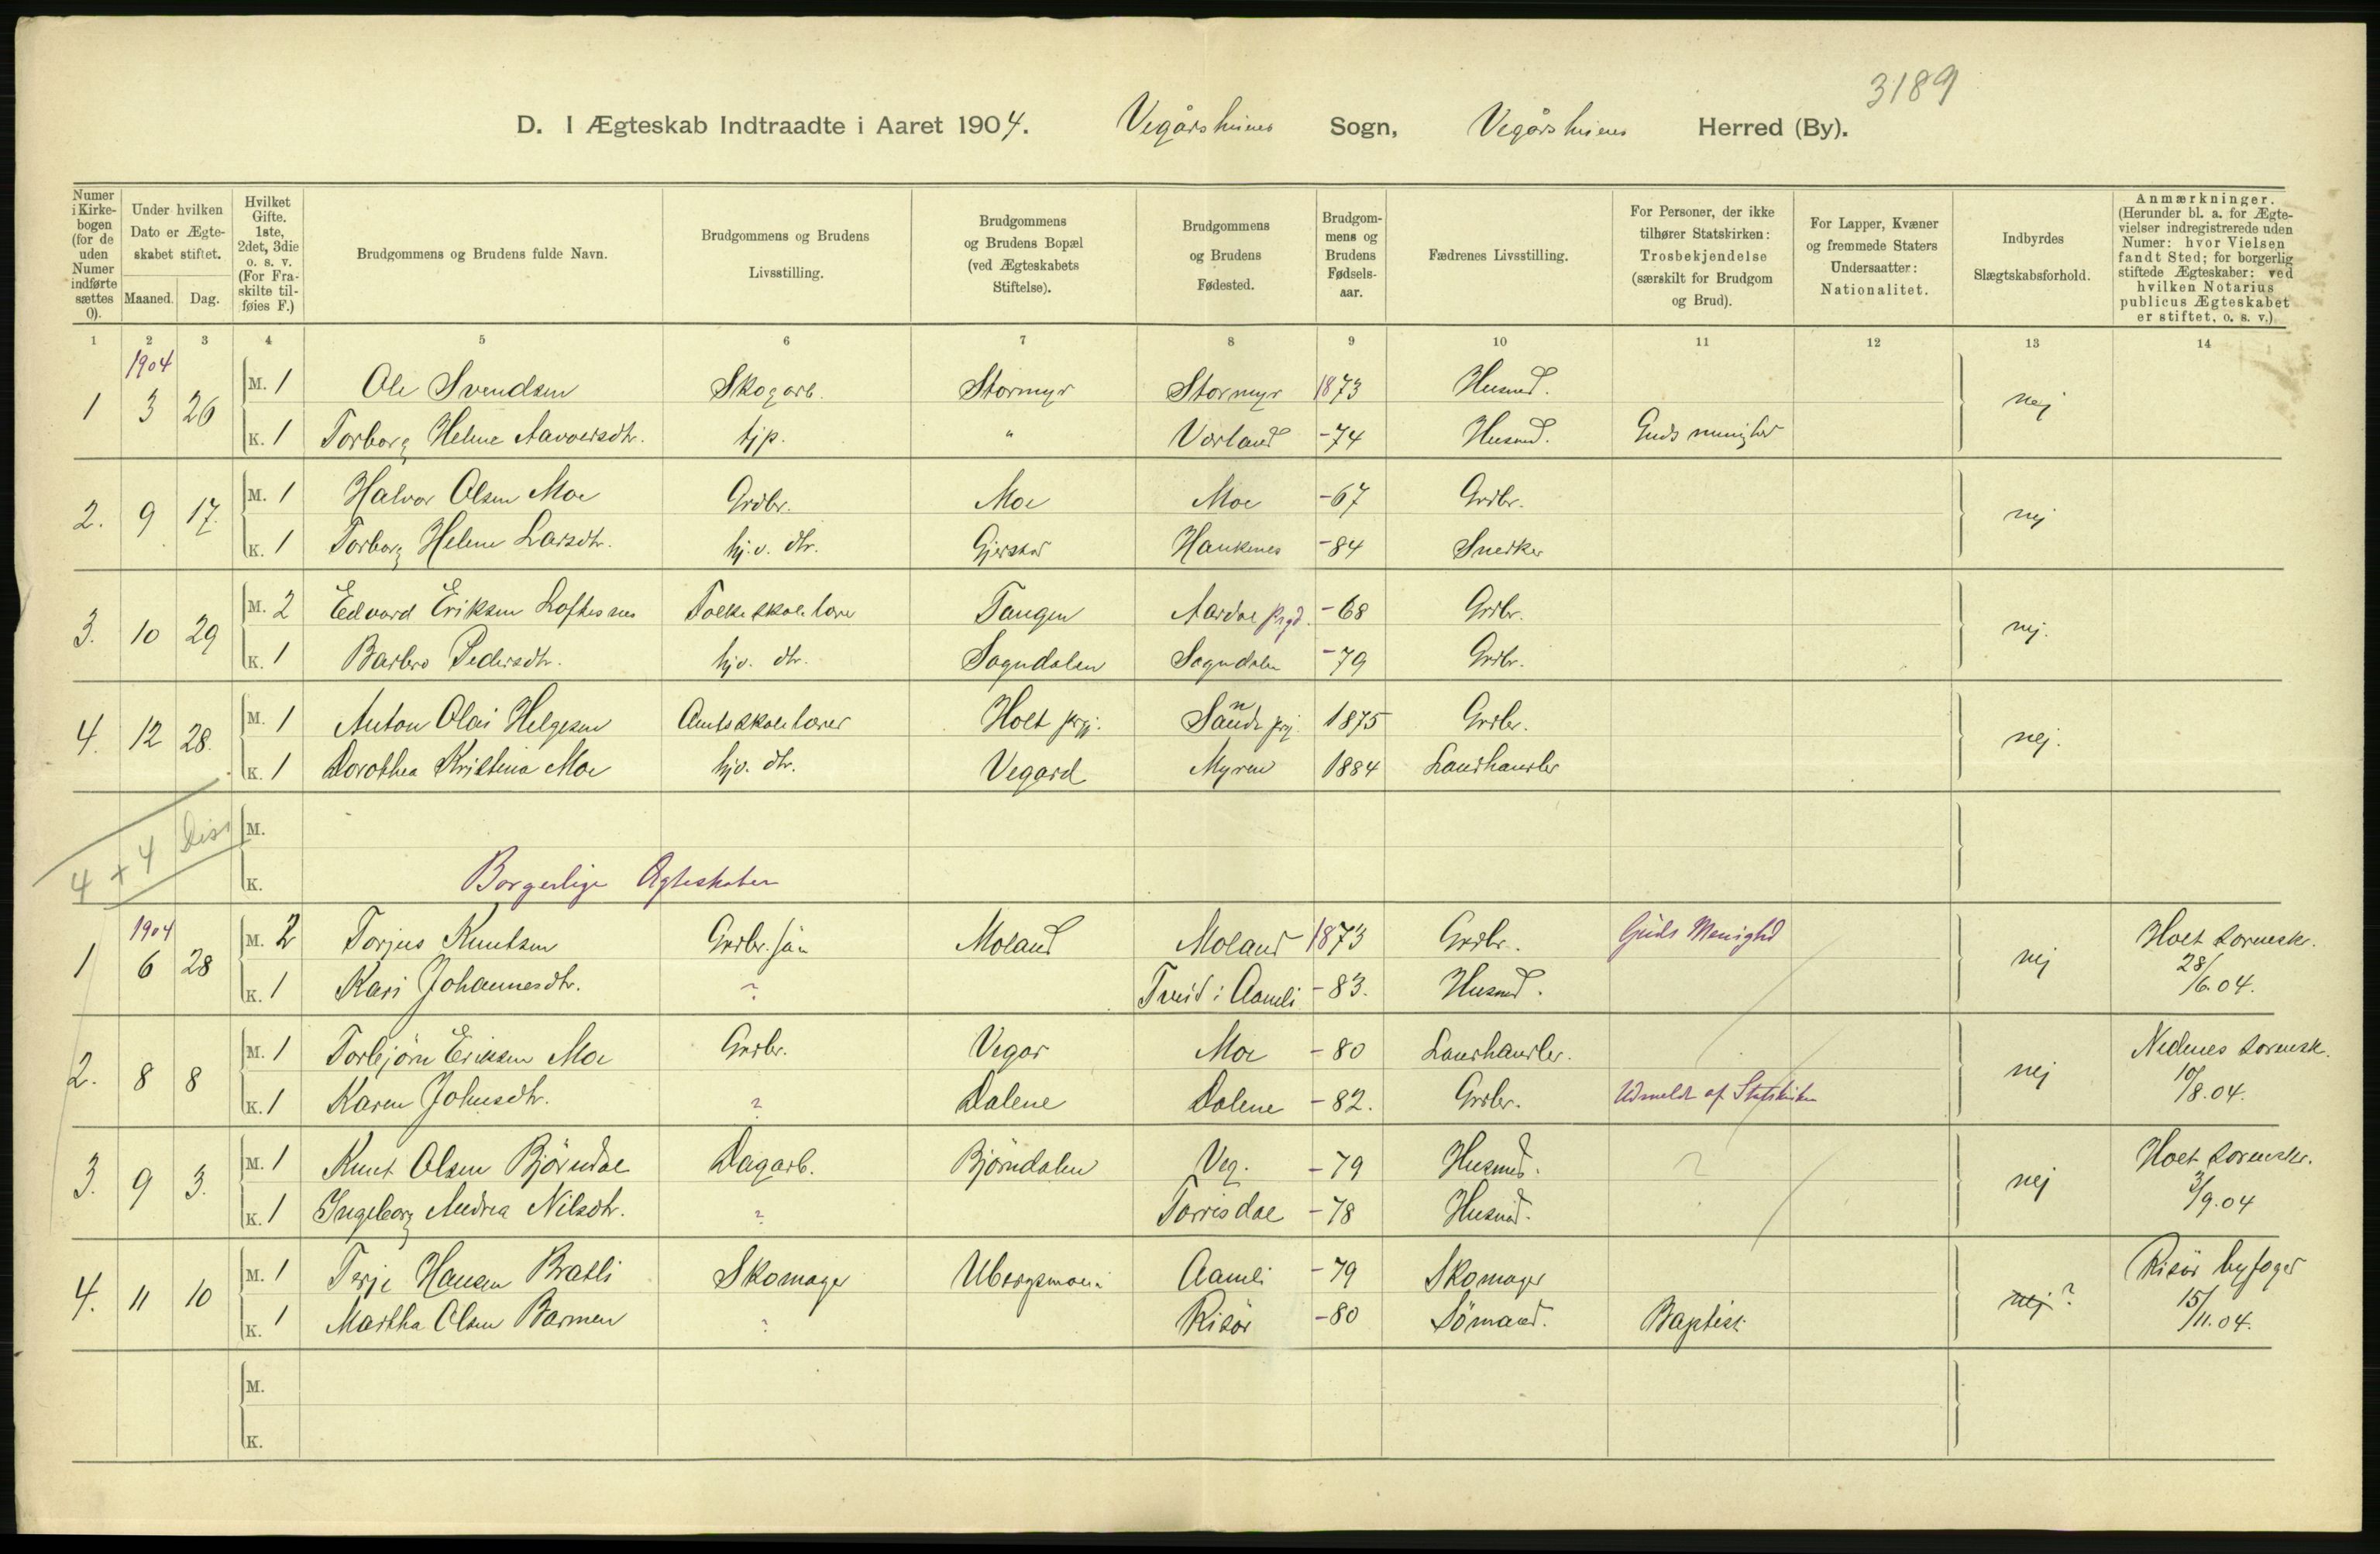 3189
D. I Ægteskab Indtraadte i Aaret 1904. Vegårsheiens Sogn, Vegårsheiens Herred (By).
Numer i Kirkebogen (for de uden Numer indførte sættes 0).
Under hvilken Dato er Ægteskabet stiftet. Maaned. Dag.
Hvilket Gifte. 1ste, 2det, 3die o. s. v. (For Fraskilte tilføies F.)
Brudgommens og Brudens fulde Navn.
Brudgommens og Brudens Livsstilling.
Brudgommens og Brudens Bopæl (ved Ægteskabets Stiftelse).
Brudgommens og Brudens Fødested.
Brudgommens og Brudens Fødselsaar.
Fædrenes Livsstilling.
For Personer, der ikke tilhører Statskirken: Trosbekjendelse (særskilt for Brudgom og Brud).
For Lapper, Kvæner og fremmede Staters Undersaatter: Nationalitet.
Indbyrdes Slægtskabsforhold.
Anmærkninger. (Herunder bl. a. for Ægtevielser indregistrerede uden Numer: hvor Vielsen fandt Sted; for borgerlig stiftede Ægteskaber: ved hvilken Notarius publicus Ægteskabet er stiftet, o. s. v.)
1 2 3 4 5 6 7 8 9 10 11 12 13 14
1904
1 3 26 M. 1 Ole Svendsen Skogarb. Stormyr Stormyr 1873 Husmd. nej
K. 1 Torborg Helene Aavoersdtr. tjp. " Vorland -74 Husmd. Guds menighed
2. 9 17. M. 1 Halvor Olsen Moe Grdbr. Moe Moe -67 Grdbr. nej
K. 1 Torborg Helene Larsdtr. hj.v. dtr. Gjerstad Haukenes -84 Snedker
3. 10 29 M. 2 Edvard Eriksen Loftesnes Folkeskolelærer Tangen Aardal prgd. -68 Grdbr. nej.
K. 1 Barbro Pedersdtr. hjv. dtr. Sogndalen Sogndalen -79 Grdbr.
4. 12 28. M. 1 Anton Olai Helgesen Amtsskolelærer Holt prgj. Sande prj. 1875 Grdbr. nej.
K. 1 Dorothea Kristina Moe hjv. dtr. Vegard Myren 1884 Landhandler
4 + 4 Diss M.
K. Borgerlige Ægteskaber
1904
1 6 28 M. 2 Torjus Knutsen Grdbr. søn Moland Moland 1873 Grdbr. Guds Menighd nej Holt sorensk.
K. 1 Kari Johannesdtr. ? Tveid i Aamli -83. Husmd. 28/6.04.
2. 8 8 M. 1 Torbjörn Eriksen Moe Grdbr. Vegar Moe -80 Landhandler. nej Nedenes sorensk.
K. 1 Karen Johnsdtr. ? Dalene Dalene -82. Grdbr. Udmeldt af Statskirken 10/8.04.
3. 9 3. M. 1 Knut Olsen Björndal Dagarb. Björndalen Veg. -79 Husmd. ? nej Holt sorensker.
K. 1 Ingeborg Andrea Nilsdtr. ? Torrisdal -78 Husmd. 3/9.04
4. 11 10 M. 1 Terje Hansen Bratli Skomager Ubergsmoen Aamli -79 Skomager nej ? Risør byfoged
K. 1 Martha Olsen Barmen ? Risør -80 Sömand. Baptist 15/11.04.
M.
K.